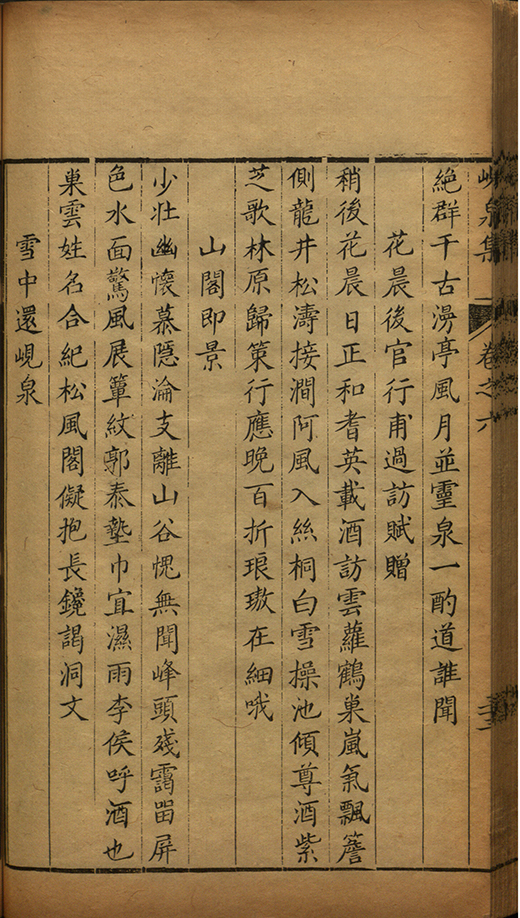 峴泉集 卷之六
絶群千古漫亭風月並靈泉一酌道誰聞
花晨後官行甫過訪賦贈
稍後花晨日正和耆英載酒訪雲蘿鶴巢嵐氣飄簷
側龍井松濤接澗阿風入絲桐白雪操池傾尊酒紫
芝歌林原歸策行應晚百折琅璈在細哦
山閣即景
少壯幽懷慕隱淪支離山谷愧無聞峰頭殘靄留屏
色水面驚風展簟紋郭泰墊巾宜濕雨李侯呼酒也
巢雲姓名合紀松風閣儗抱長鑱謁洞文
雪中還峴泉